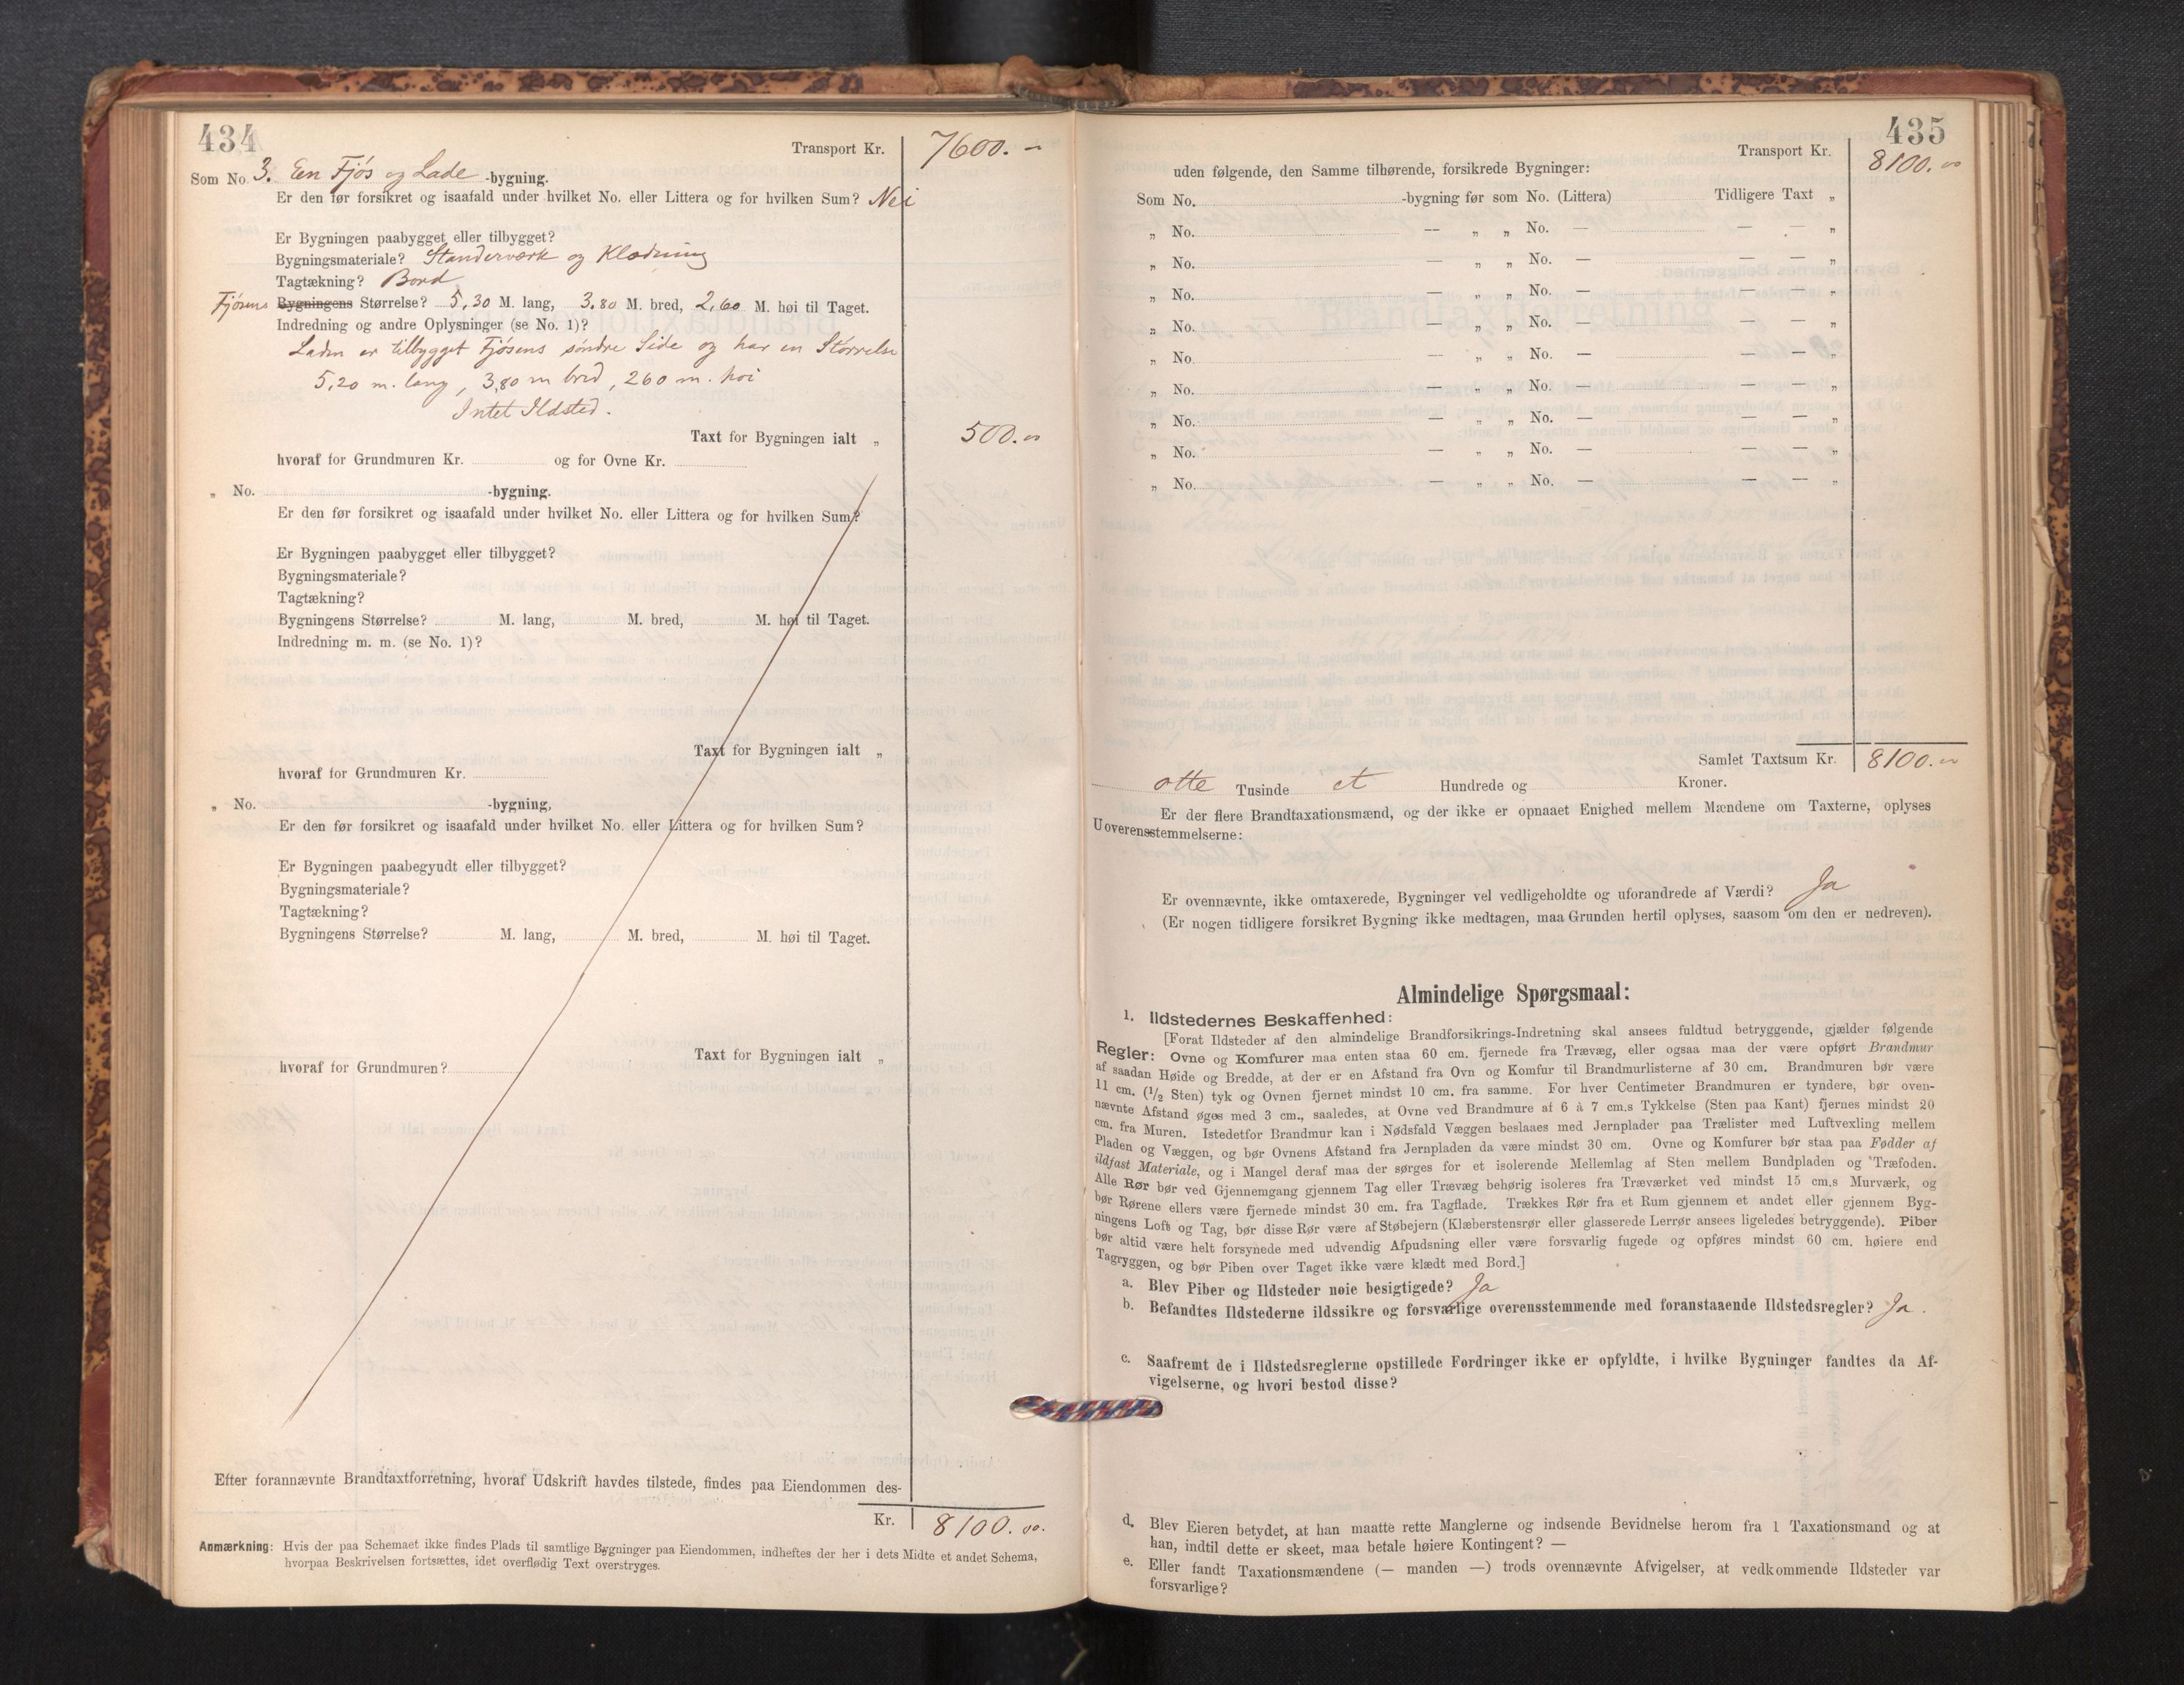 434
Transport Kr. 7600. –
Som No. 3. En Fjøs og Lade -bygning.
Er den før forsikret og isaafald under hvilket No. eller Littera og for hvilken Sum? Nei
Er Bygningen paabygget eller tilbygget?
Bygningsmateriale? Standerværk og Klædning
Tagtækning? Bord
Fjøsens Bygningens Størrelse? 5,30 M. lang, 3.80 M. bred, 2,60 M. høi til Taget.
Indredning og andre Oplysninger (se No. 1)?
Laden er tilbygget Fjøsens søndre Side og har en Størrelse
5,20 m. lang, 3,80 m bred, 260 m. høi
Intet Ildsted.
Taxt for Bygningen ialt „ 500.00
hvoraf for Grundmuren Kr. og for Ovne Kr.
„ No. -bygning.
Er den før forsikret og isaafald under hvilket No. eller Littera og for hvilken Sum?
Er Bygningen paabygget eller tilbygget?
Bygningsmateriale?
Tagtækning?
Bygningens Størrelse? M. lang, M. bred, M. høi til Taget.
Indredning m. m. (se No. 1)?
Taxt for Bygningen ialt „
hvoraf for Grundmuren Kr.
„ No. -bygning,
Er den før forsikret og isaafald under hvilket No. eller Littera og for hvilken Sum?
Er Bygningen paabegyndt eller tilbygget?
Bygningsmateriale?
Tagtækning?
Bygningens Størrelse? M. lang, M. bred, M. høi til Taget.
Taxt for Bygningen ialt „
hvoraf for Grundmuren?
Efter forannævnte Brandtaxtforretning, hvoraf Udskrift havdes tilstede, findes paa Eiendommen des-
Kr. 8100.00.
Anmærkning: Hvis der paa Schemaet ikke findes Plads til samtlige Bygninger paa Eiendommen, indheftes der her i dets Midte et andet Schema,
hvorpaa Beskrivelsen fortsættes, idet overflødig Text overstryges.
435
Transport Kr. 8100.00
uden følgende, den Samme tilhørende, forsikrede Bygninger:
Som No. -bygning før som No. (Littera) Tidligere Taxt „
„ No. — „ „ No. — — — „
„ No. — „ „ No. — — — „
„ No. — „ „ No. — — — „
„ No. — „ „ No. — — — „
„ No. — „ „ No. — — — „
„ No. — „ „ No. — — — „
„ No. — „ „ No. — — — „
„ No. — „ „ No. — — — „
„ No. — „ „ No. — — — „
Samlet Taxtsum Kr. 8100.00
otte Tusinde et Hundrede og Kroner.
Er der flere Brandtaxationsmænd, og der ikke er opnaaet Enighed mellem Mændene om Taxterne, oplyses
Uoverensstemmelserne:
Er ovennævnte, ikke omtaxerede, Bygninger vel vedligeholdte og uforandrede af Værdi? Ja
(Er nogen tidligere forsikret Bygning ikke medtagen, maa Grunden hertil oplyses, saasom om den er nedreven).
Almindelige Spørgsmaal:
1. Ildstedernes Beskaffenhed:
[Forat Ildsteder af den almindelige Brandforsikrings-Indretning skal ansees fuldtud betryggende, gjælder følgende
Regler: Ovne og Komfurer maa enten staa 60 cm. fjernede fra Trævæg, eller ogsaa maa der være opført Brandmur
af saadan Høide og Bredde, at der er en Afstand fra Ovn og Komfur til Brandmurlisterne af 30 cm. Brandmuren bør være
11 cm. (1/2 Sten) tyk og Ovnen fjernet mindst 10 cm. fra samme. For hver Centimeter Brandmuren er tyndere, bør oven-
nævnte Afstand øges med 3 cm., saaledes, at Ovne ved Brandmure af 6 à 7 cm.s Tykkelse (Sten paa Kant) fjernes mindst 20
cm. fra Muren. Istedetfor Brandmur kan i Nødsfald Væggen beslaaes med Jernplader paa Trælister med Luftvexling mellem
Pladen og Væggen, og bør Ovnens Afstand fra Jernpladen da være mindst 30 cm. Ovne og Komfurer bør staa paa Fødder af
ildfast Materiale, og i Mangel deraf maa der sørges for et isolerende Mellemlag af Sten mellem Bundpladen og Træfoden.
Alle Rør bør ved Gjennemgang gjennem Tag eller Trævæg behørig isoleres fra Træværket ved mindst 15 cm.s Murværk, og
bør Rørene ellers være fjernede mindst 30 cm. fra Tagflade. Trækkes Rør fra et Rum gjennem et andet eller gjennem Byg-
ningens Loft og Tag, bør disse Rør være af Støbejern (Klæberstensrør eller glasserede Lerrør ansees ligeledes betryggende). Piber
bør altid være helt forsynede med udvendig Afpudsning eller være forsvarlig fugede og opføres mindst 60 cm. høiere end
Tagryggen, og bør Piben over Taget ikke være klædt med Bord.]
a. Blev Piber og Ildsteder nøie besigtigede? Ja
b. Befandtes Ildstederne ildssikre og forsvarlige overensstemmende med foranstaaende Ildstedsregler? Ja.
c. Saafremt de i Ildstedsreglerne opstillede Fordringer ikke er opfyldte, i hvilke Bygninger fandtes da Af-
vigelserne, og hvori bestod disse?
d. Blev Eieren betydet, at han maatte rette Manglerne og indsende Bevidnelse herom fra 1 Taxationsmand og at
han, indtil dette er skeet, maa betale høiere Kontingent? —
e. Eller fandt Taxationsmændene (— manden —) trods ovennævnte Afvigelser, at vedkommende Ildsteder var
forsvarlige?